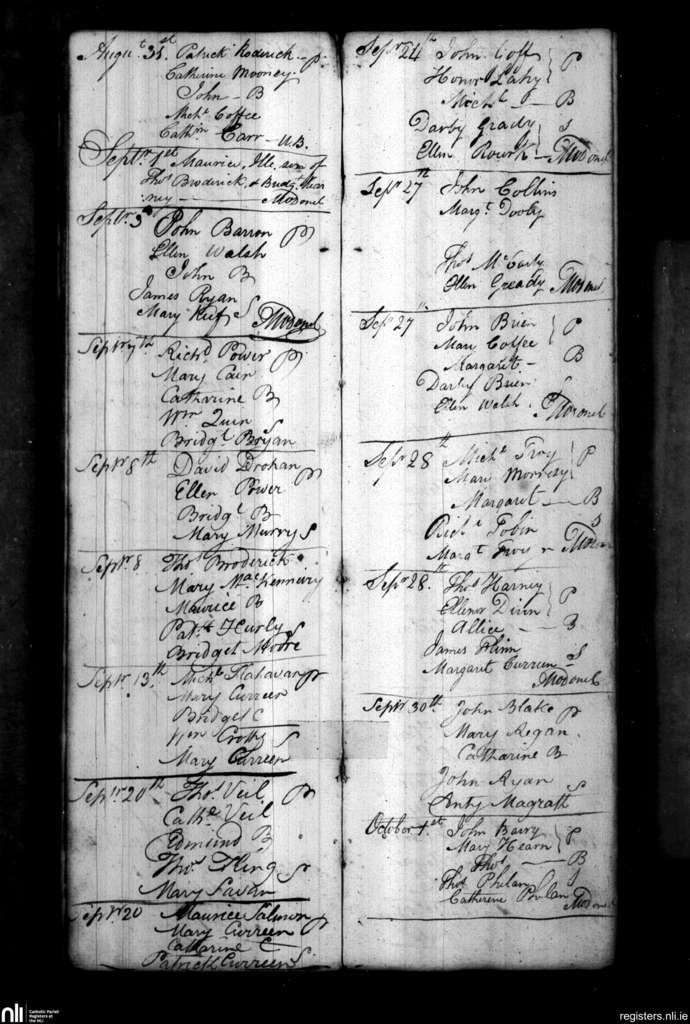 Augt 31st Patrick Roderick - P
Catherine Mooney
John - B
Michl Coffee
Cathn Carr - U.B.
Septr 1st Maurice, Ille. son of
Thos Broderick, & Bridgt
ney - McDonel
Septr 3d John Barron P
Ellen Walsh
John B
James Ryan
Mary Keef S McDonel
Septr 7th Richd Power P
Mary Cain
Catharine B
Wm Quin
Bridgt Bryan S
Septr 8th David Drohan
Ellen Power P
Bridgt B
Mary Murry S
Septr 8 Thos Broderick
Mary MacKennery
Maurice B
Patk Hurly
Bridget Moore S
Septr 13th Michl Flahavan P
Mary Curreen
Bridget C
Wm Crotty
Mary Curreen S
Septr 20th Thos Veil P
Cathe Veil
Edmund B
Thos King
Mary Lavan S
Septr 20 Maurice Salmon
Mary Curreen P
Catharine C
Patrick Curreen S
Sepr 24th John Goff
Honor Lahy P
Michl - B
Darby Grady S
Ellen Rourk - McDonel
Sepr 27th John Collins
Margt Dooly
Thos McCarty
Ellen Gready McDonel
Sepr 27th John Brien P
Mary Colfee
Margaret - B
Darby Brien S
Ellen Welsh. McDonel
Sepr 28th Michl Troy
Mary Morrissy P
Margaret - B
Richd Tobin S
Margt Troy McDonel
Sepr 28th Thos Harney
Ellenor Dinn P
Allice - B
James Flinn
Margaret Curreen - S
McDonel
Septr 30th John Blake P
Mary Regan
Catharine B
John Ryan
Anty Magrath S
October 1st John Barry
Mary Hearn P
Thos - B
Thos Phelan S
Catherine Phelan McDonel
nli
Catholic Parish
Registers at
the NLI
registers.nli.ie